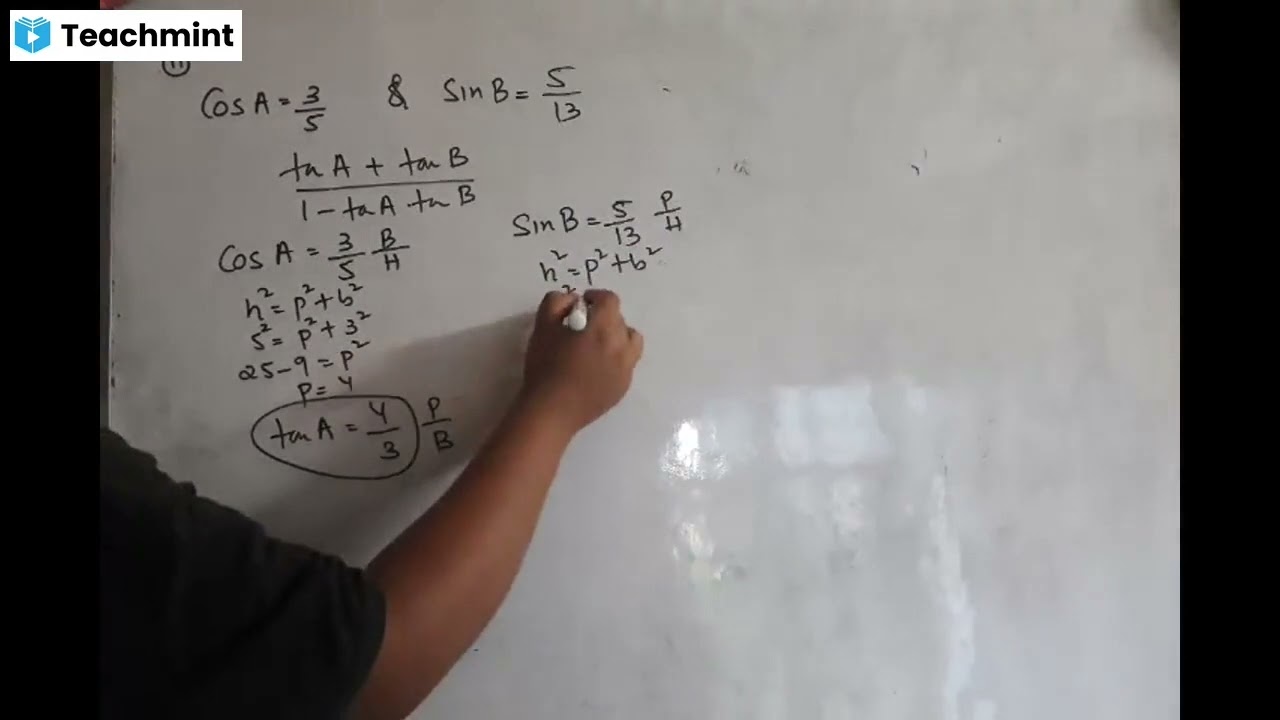 Teachmint
11
Cos A = 3/5 & Sin B = 5/13
tan A + tan B / 1 - tan A . tan B
Cos A = 3/5 B/H
h² = p² + b²
5² = p² + 3²
25 - 9 = p²
P = 4
tan A = 4/3 P/B
Sin B = 5/13 P/H
h² = p² + b²
2